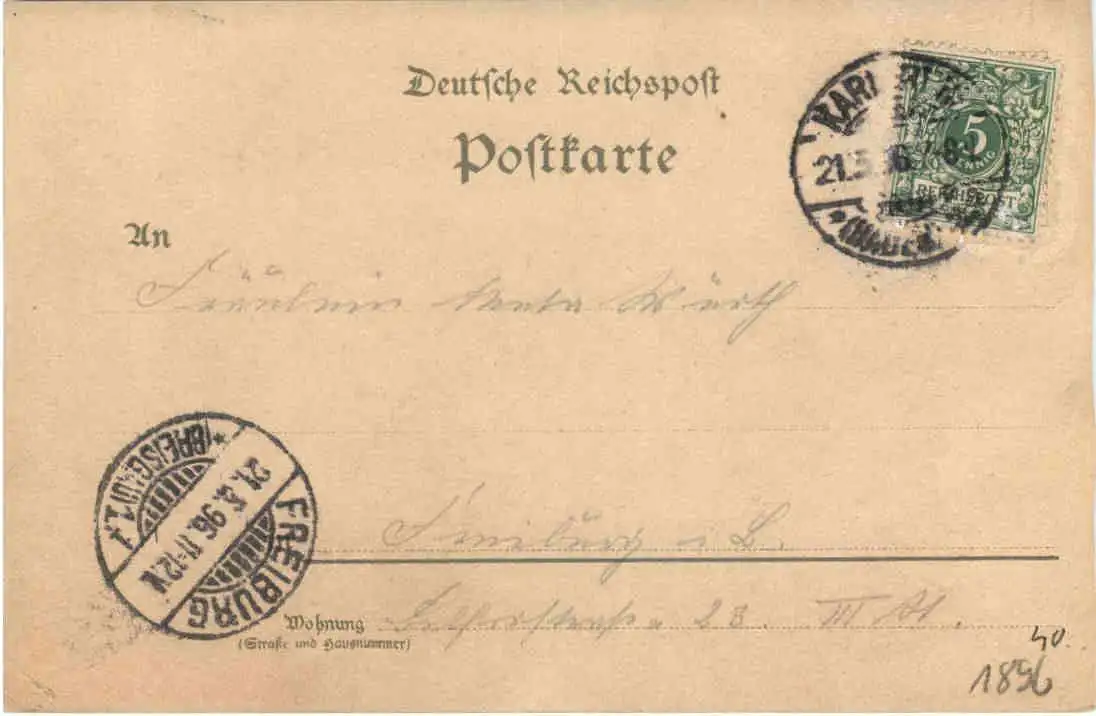 Deutsche Reichspost
Postkarte
KARLSRUHE
21.5.96.
(BADEN)
5
PFENNIG
REICHSPOST
An
Fräulein Würth
FREIBURG
21.5.96.11-12V.
*(BREISGAU)1.*
Freiburg i. B.
Wohnung
(Straße und Hausnummer)
23 III
40.
1896